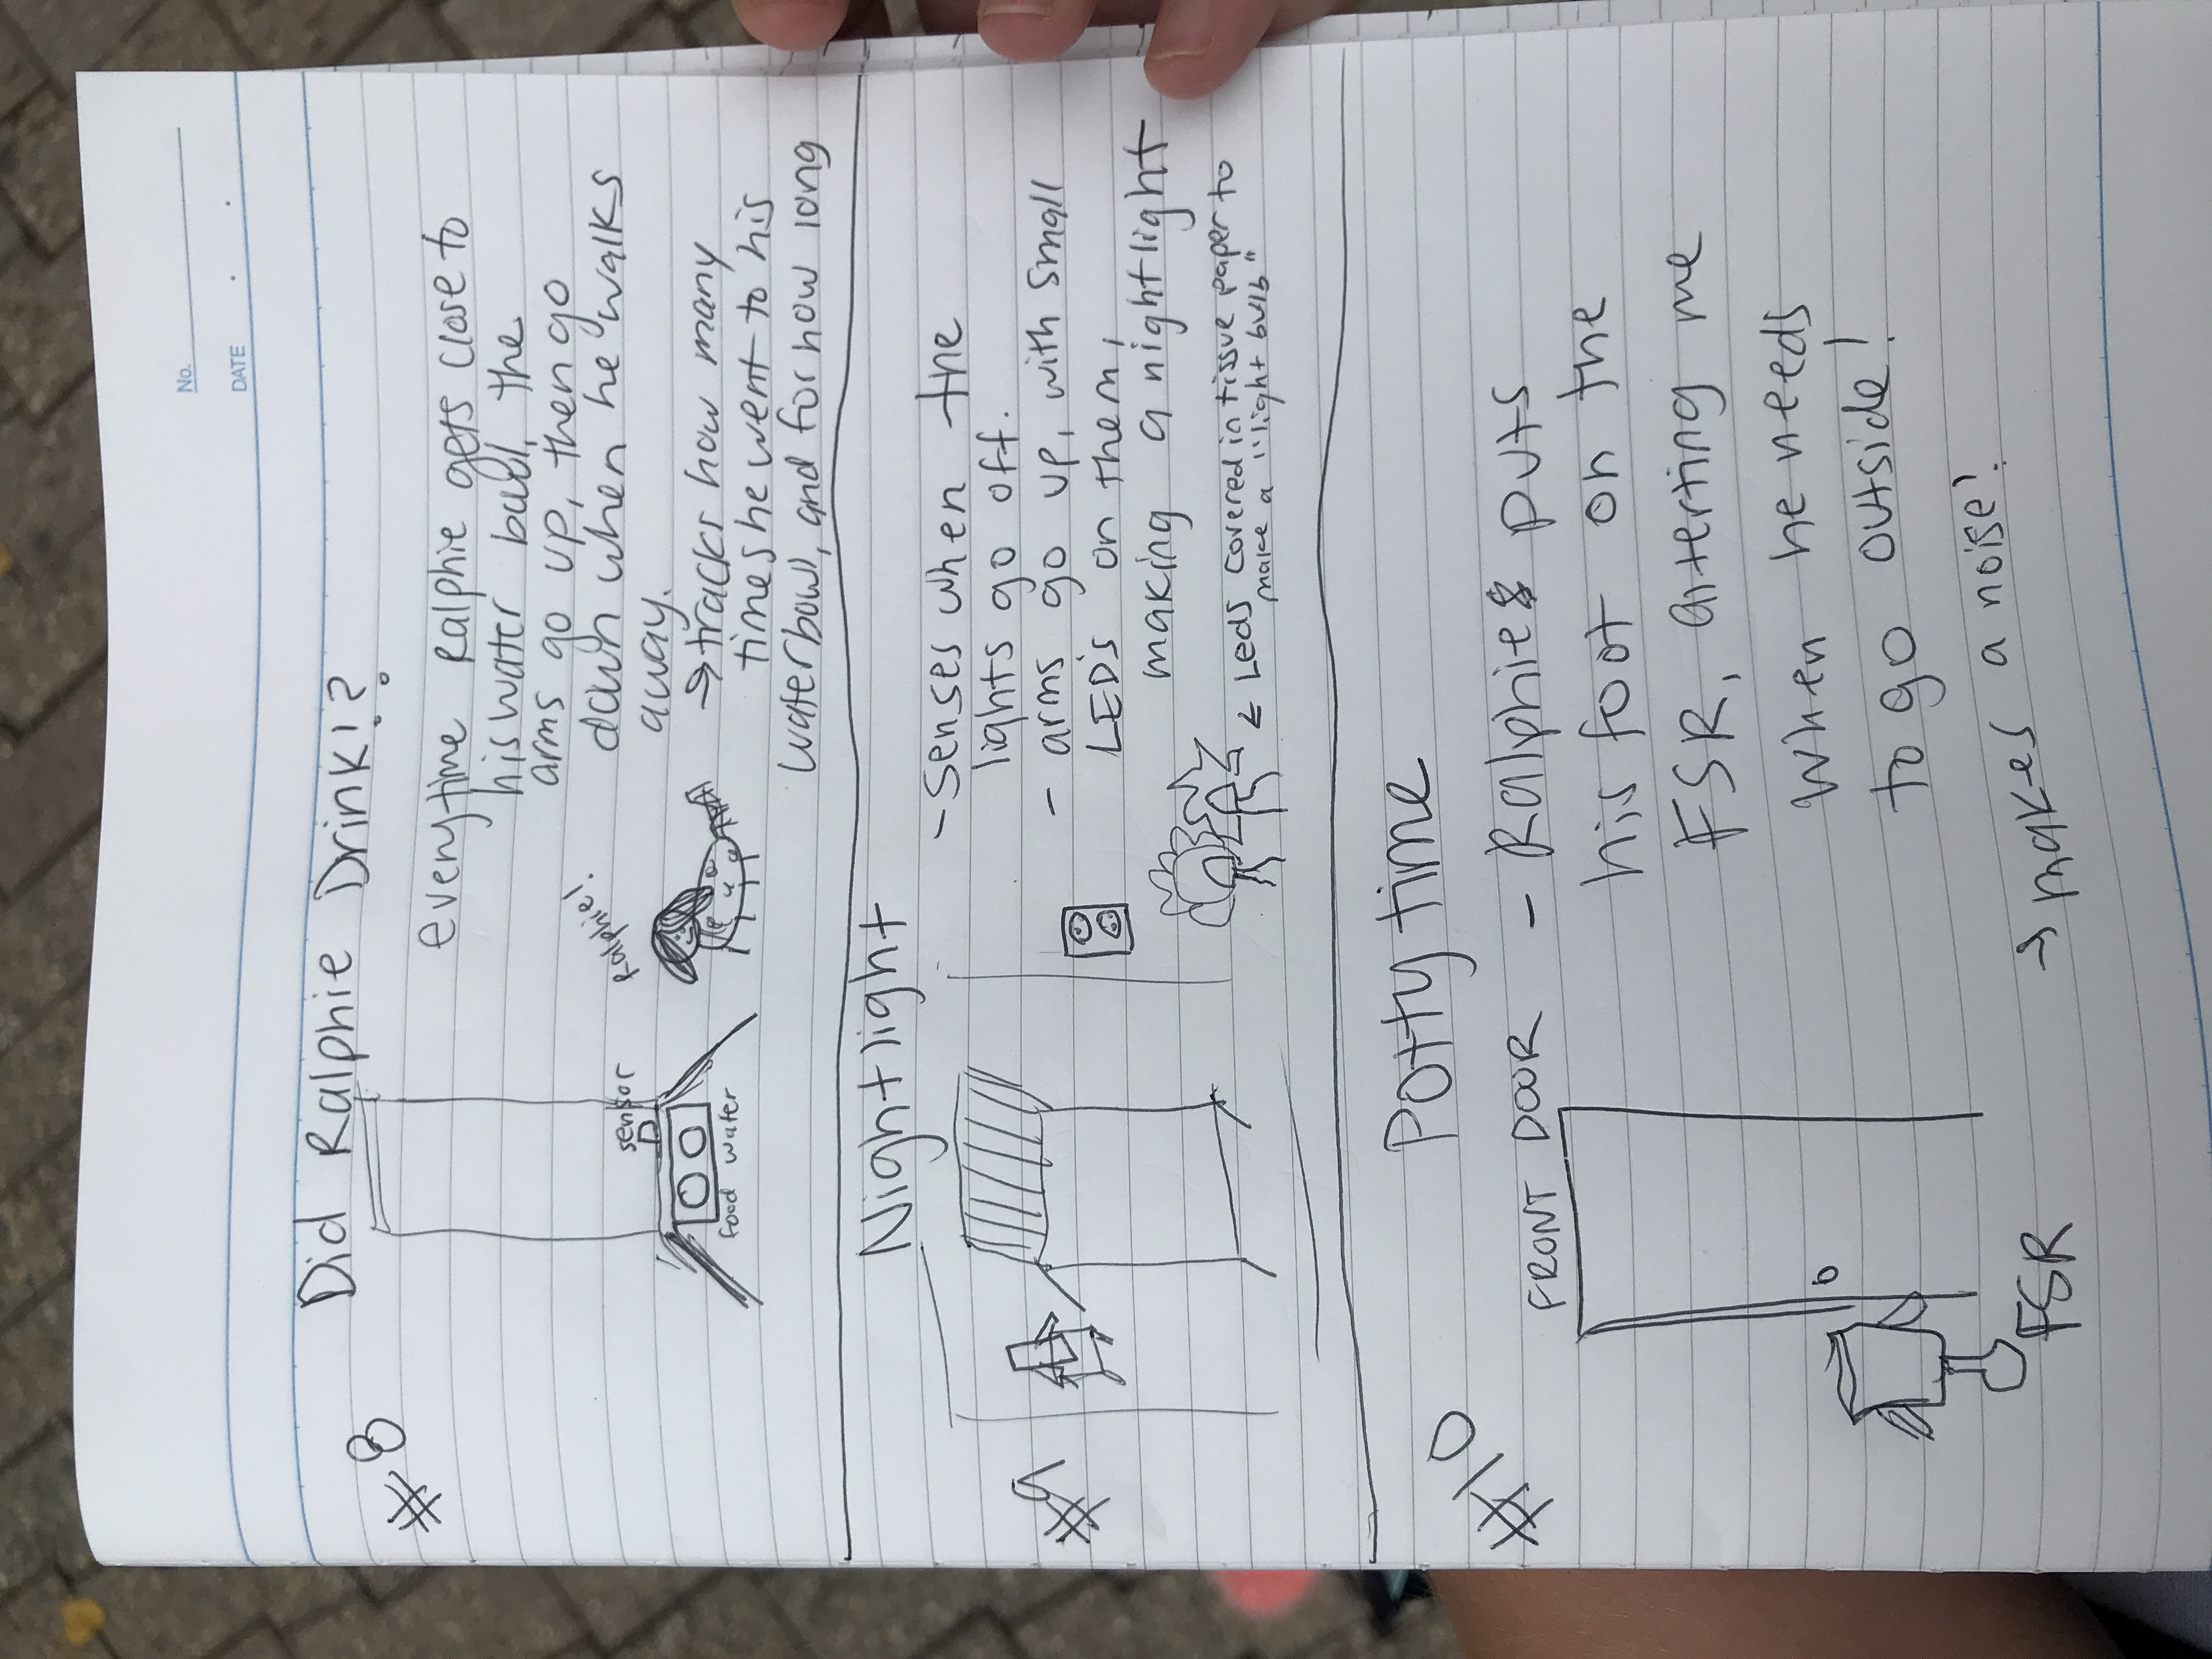 No.
DATE
#8
Did Ralphie Drink!?
everytime Ralphie gets close to
his water bowl, the
arms go up, then go
down when he walks
away.
→ tracks how many
times he went to his
waterbowl, and for how long
Ralphie!
sensor
food water
Nightlight
#9
- senses when the
lights go off.
- arms go up, with small
LED's on them,
making a nightlight
← Leds covered in tissue paper to
make a "light bulb"
Potty time
#10
FRONT DOOR
- Ralphie puts
his foot on the
FSR, alterting me
when he needs
to go outside!
→ makes a noise!
FSR